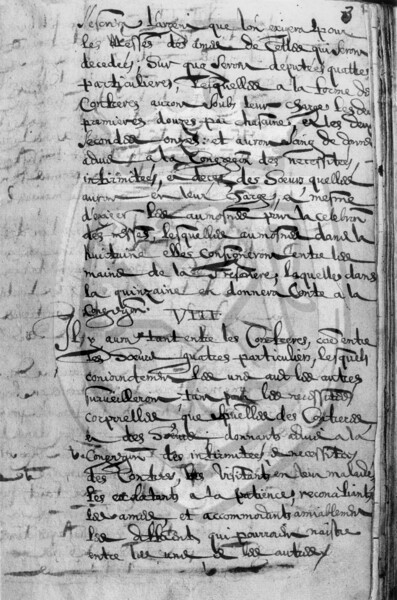 3
l'argent que l'on exigera pour
les Messes des ames de Celles qui seront
decedees; Sur quoy seront deputees quattre
particulieres, lesquelles a la forme de
Confreres auront soubs leur charge les deux
premieres douze par chascune, et les deux
secondes onze: et auront soing de donner
aduis, a la Congregon des necessites,
infirmites, et deces des Soeurs quelles
auront en leur charge, et mesme
d'exiger les aumosnes pour la celebron
des Messes, lesquelles aumosnes dans la
huictaine elles consigneront entre les
mains de la Tresoriere, laquelle dans
la quinzaine en donnera Conte a la
Congregon.
VIIII
Il y aura tant entre les Confreres, comme entre
les Soeurs quatres particuliers, lesquels
conioinctement les uns auec les autres
surueilleront tant pour les necessites
corporelles que spirituelles des Confreres
et des Soeurs; donnants aduis a la
Congregon des infirmites et necessites
des Confreres, les visitant en leurs maladies
les exortants a la patience, reconciliants
les ames et accommodants amiablement
les differents qui pourroient naistre
entre les uns et les autres